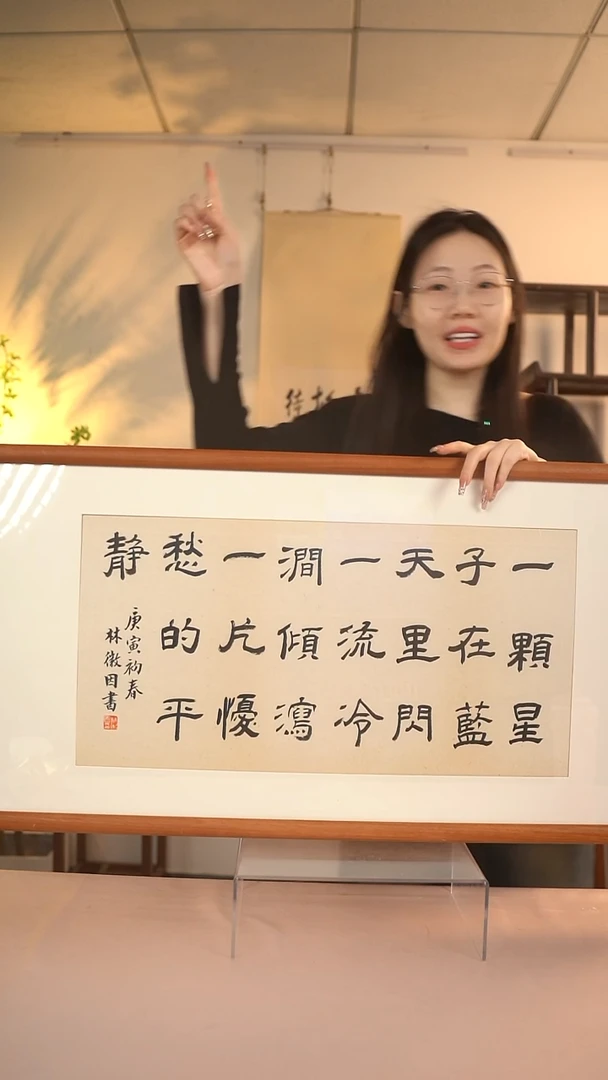 一顆星
子在藍
天里閃
一流冷
澗傾瀉
一片懮
愁的平
静
庚寅初春
林徽因書